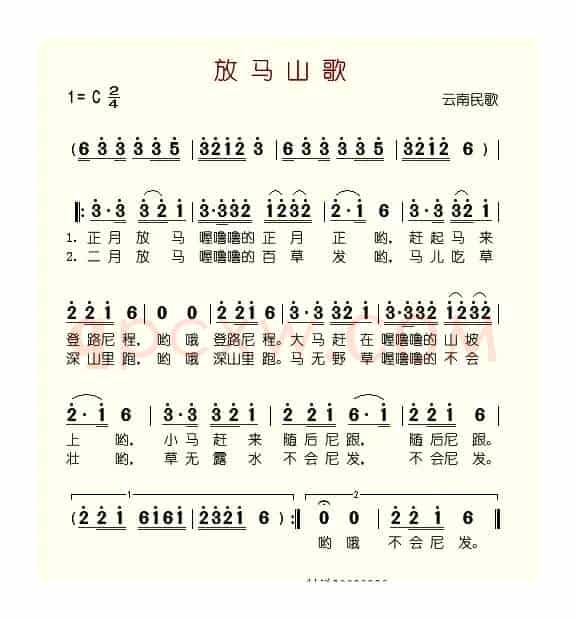 放马山歌
1= C 2/4
云南民歌
(6 3 3 3 5 | 3212 3 | 6 3 3 3 5 | 3212 6 ) |
‖: 3·3 3 2 1 | 3·332 1232 | 2·1 6 | 3·3 3 2 1 |
1. 正月放马喔噜噜的正月正哟,赶起马来
2. 二月放马喔噜噜的百草发哟,马儿吃草
2 2 1 6 | 0 0 | 2 2 1 6 | 3·3 3 2 1 | 3·332 1232 |
登路尼程,哟哦登路尼程。大马赶在喔噜噜的山坡
深山里跑,哟哦深山里跑。马无野草喔噜噜的不会
2·1 6 | 3·3 3 2 1 | 2 2 1 6·1 | 2 2 1 6 |
上哟,小马赶来随后尼跟,随后尼跟。
壮哟,草无露水不会尼发,不会尼发。
1 2
( 2 2 1 6161 | 2321 6 ) :‖ 0 0 | 2 2 1 6 ‖
哟哦不会尼发。